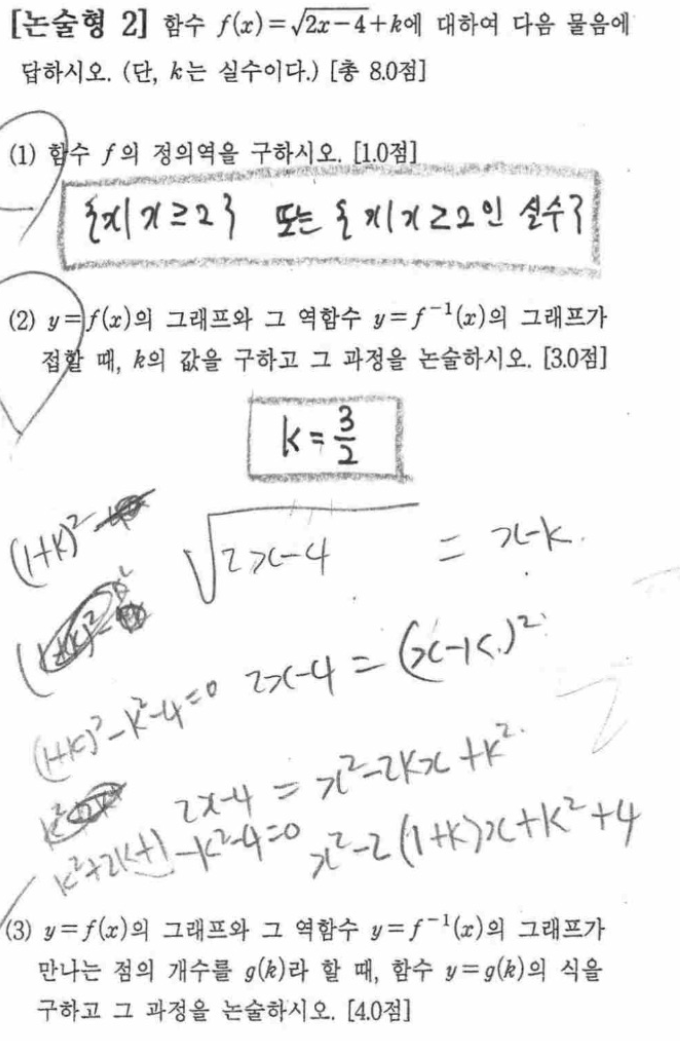 [논술형 2] 함수 f(x)=√(2x-4)+k에 대하여 다음 물음에
답하시오. (단, k는 실수이다.) [총 8.0점]
(1) 함수 f의 정의역을 구하시오. [1.0점]
{x|x≥2} 또는 {x|x≥2인 실수}
(2) y=f(x)의 그래프와 그 역함수 y=f⁻¹(x)의 그래프가
접할 때, k의 값을 구하고 그 과정을 논술하시오. [3.0점]
k=3/2
(1+k)²
√(2x-4) = x-k.
2x-4=(x-k)²
(1+k)²-k²-4=0
2x-4=x²-2kx+k²
k²+2k+1-k²-4=0
x²-2(1+k)x+k²+4
(3) y=f(x)의 그래프와 그 역함수 y=f⁻¹(x)의 그래프가
만나는 점의 개수를 g(k)라 할 때, 함수 y=g(k)의 식을
구하고 그 과정을 논술하시오. [4.0점]